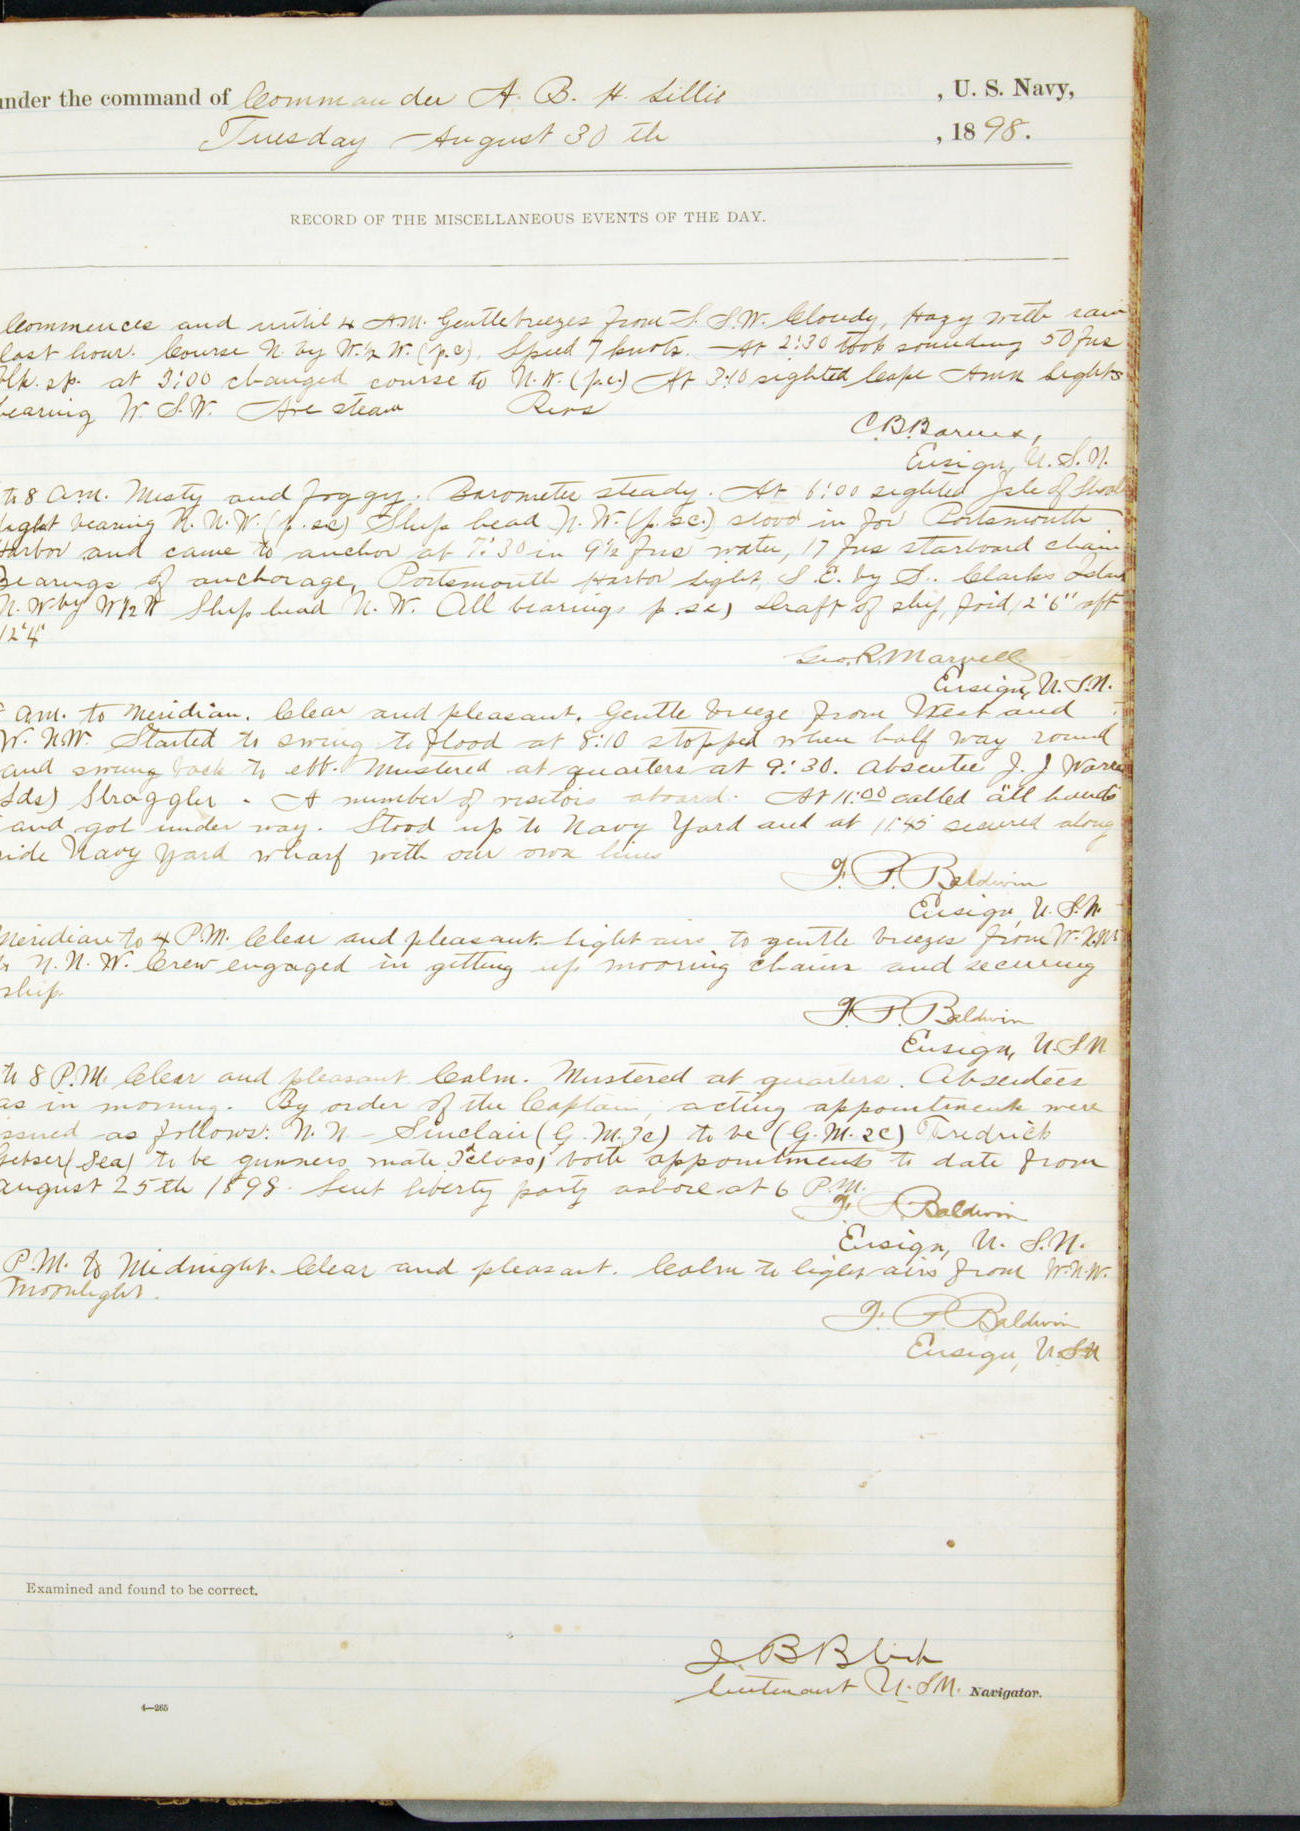 under the command of Commander A. B. H. Lillie , U. S. Navy,
Tuesday August 30th , 1898.
RECORD OF THE MISCELLANEOUS EVENTS OF THE DAY.
Commences and until 4 AM. Gentle breezes from S. S.W. Cloudy, Hazy with rain
last hour. Course N. by W. 1/2 W. (p.c). Speed 7 knots. At 2:30 took sounding 50 fms
blk. sp. at 3:00 changed course to N.W. (p.c.) At 3:10 sighted Cape Ann Lights
bearing W. S.W. Ave steam Revs
C.B. Barnes,
Ensign, U.S.N.
to 8 a.m. Misty and foggy. Barometer steady. At 6:00 sighted Isle of Shoals
light bearing N.N.W. (p.sc) Ship head N.W. (p.sc.) stood in for Portsmouth
Harbor and came to anchor at 7:30 in 9 1/2 fms water, 17 fms starboard chain
Bearings of anchorage, Portsmouth Harbor Light, S.E. by S. Clarks Island
N.W. by W 1/2 W Ship head N.W. All bearings p.sc) Draft of ship, for'd, 12'6" aft
12'4"
Geo. R. Marvell
Ensign, U.S.N.
a.m. to Meridian. Clear and pleasant. Gentle breeze from West and
W. N.W. Started to swing to flood at 8:10 stopped when half way round
and swung back to ebb. Mustered at quarters at 9:30. Absentee J. J Warren
(Lds) Straggler. A number of visitors aboard. At 11:00 called "all hands"
and got under way. Stood up to Navy Yard and at 11:45 secured along
side Navy Yard wharf with our own lines
F. P. Baldwin
Ensign, U.S.N.
Meridian to 4 P.M. Clear and pleasant. Light airs to gentle breezes from W.N.W
to N.N.W. Crew engaged in getting up mooring chains and securing
ship.
F. P. Baldwin
Ensign, U.S.N
to 8 P.M. Clear and pleasant Calm. Mustered at quarters. Absentees
as in morning. By order of the Captain, acting appointments were
issued as follows: N. N. Sinclair (G.M.3c) to be (G.M.2c) Fredrick
(Sea) to be gunners mate 3d class, both appointments to date from
August 25th 1898. Sent liberty party ashore at 6 P.M.
F. P. Baldwin
Ensign, U. S.N.
P.M. to Midnight. Clear and pleasant. Calm to light airs from W.N.W.
Moonlight.
F. P. Baldwin
Ensign, U.S.N
Examined and found to be correct.
J B Blish
Lieutenant U.S.N. Navigator.
4—265